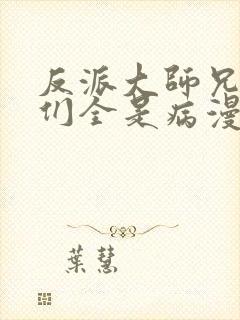 反派大師兄
们全是病漫
葉慧